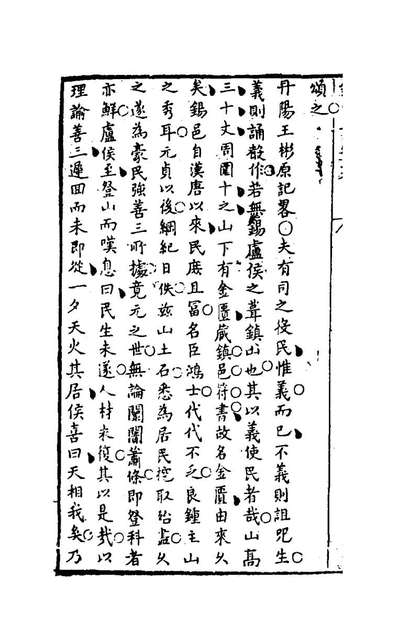 頌之
丹陽王彬原記畧○夫有司之役民惟義而已不義則詛咒生
義則誦歡作若無錫盧侯之葺鎮山也其以義使民者哉山高
三十丈周圍十之山下有金匱藏鎮邑符書故名金匱由來久
矣錫邑自漢唐以來民庶且富名臣鴻士代代不乏良鍾主山
之秀耳元貞以後綱紀日佚故山土石悉為居民挖取殆盡久
之遂為豪民強善三所據竟元之世無論闤闠蕭條即登科者
亦鮮盧侯至登山而嘆息曰民生未遂人材未復其以是哉以
理諭善三遷回而未即從一夕天火其居侯喜曰天相我矣乃